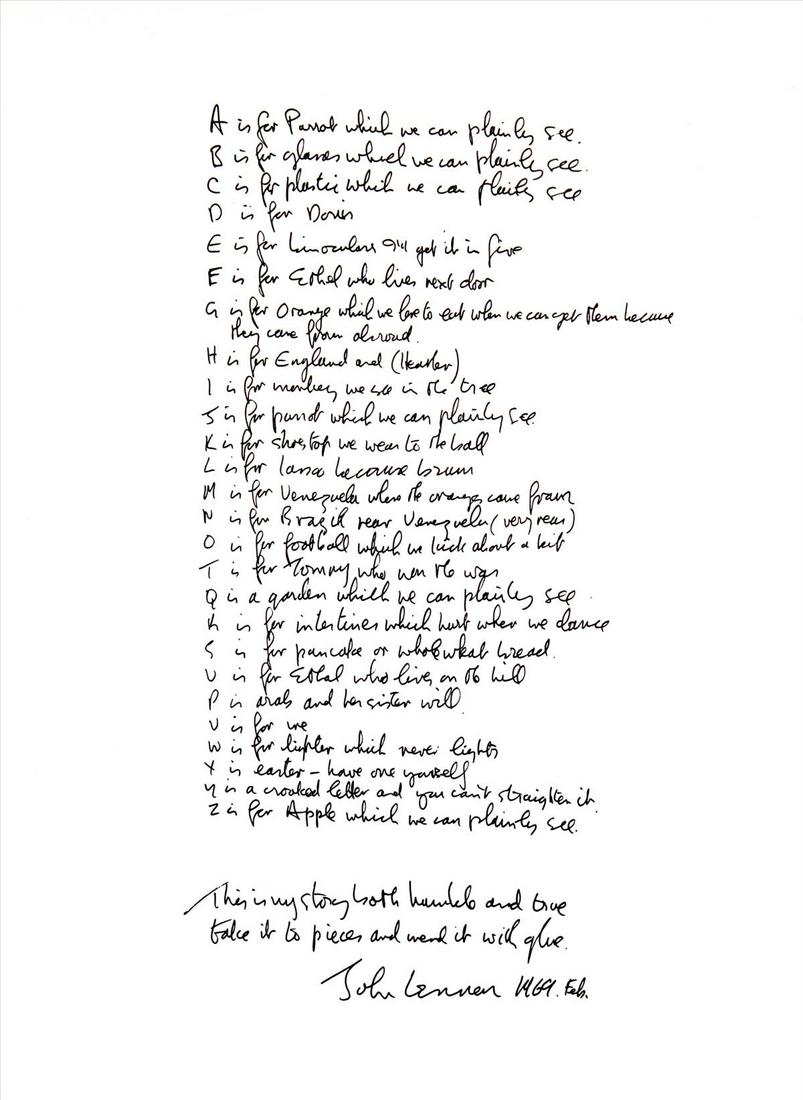 A is for Parrot which we can plainly see.
B is for glasses which we can plainly see.
C is for plastic which we can plainly see
D is for Doris
E is for binoculars I'll get it in five
E is for Ethel who lives next door
G is for Orange which we love to eat when we can get them because
they come from abroad.
H is for England and (Heather)
I is for monkey we see in the tree
J is for parrot which we can plainly see.
K is for shoetop we wear to the ball
L is for lasso because brum
M is for Venezuela where the oranges come from
N is for Brazil near Venezuela (very near)
O is for football which we kick about a bit
T is for Tommy who won the war
Q is a garden which we can plainly see.
R is for intestines which hurt when we dance
S is for pancake or wholewheat bread.
U is for Ethel who lives on the hill
P is arab and her sister will.
V is for me
W is for lighter which never lights
X is easter – have one yourself
Y is a crooked letter and you can't straighten it.
Z is for Apple which we can plainly see.
This is my story both humble and true
take it to pieces and mend it with glue.
John Lennon 1969. Feb.